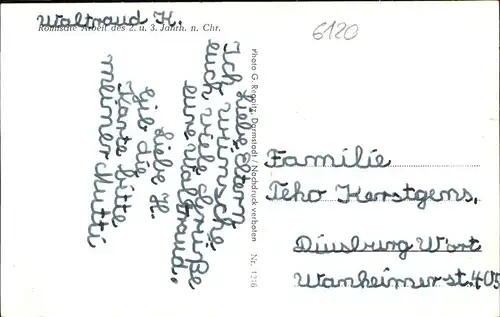 Waltraud K.
Römische Arbeit des 2. u. 3. Jahrh. n. Chr.
6120
Liebe Eltern
Ich wünsche
euch viele Grüße
eure Waltraud.
Liebe H.
Gib die
Karte bitte
meiner Mutti
Photo G. Rognitz, Darmstadt / Nachdruck verboten Nr. 1216
Familie
Teho Kerstgens.
Diusburg Wort
Wanheimerst. 405